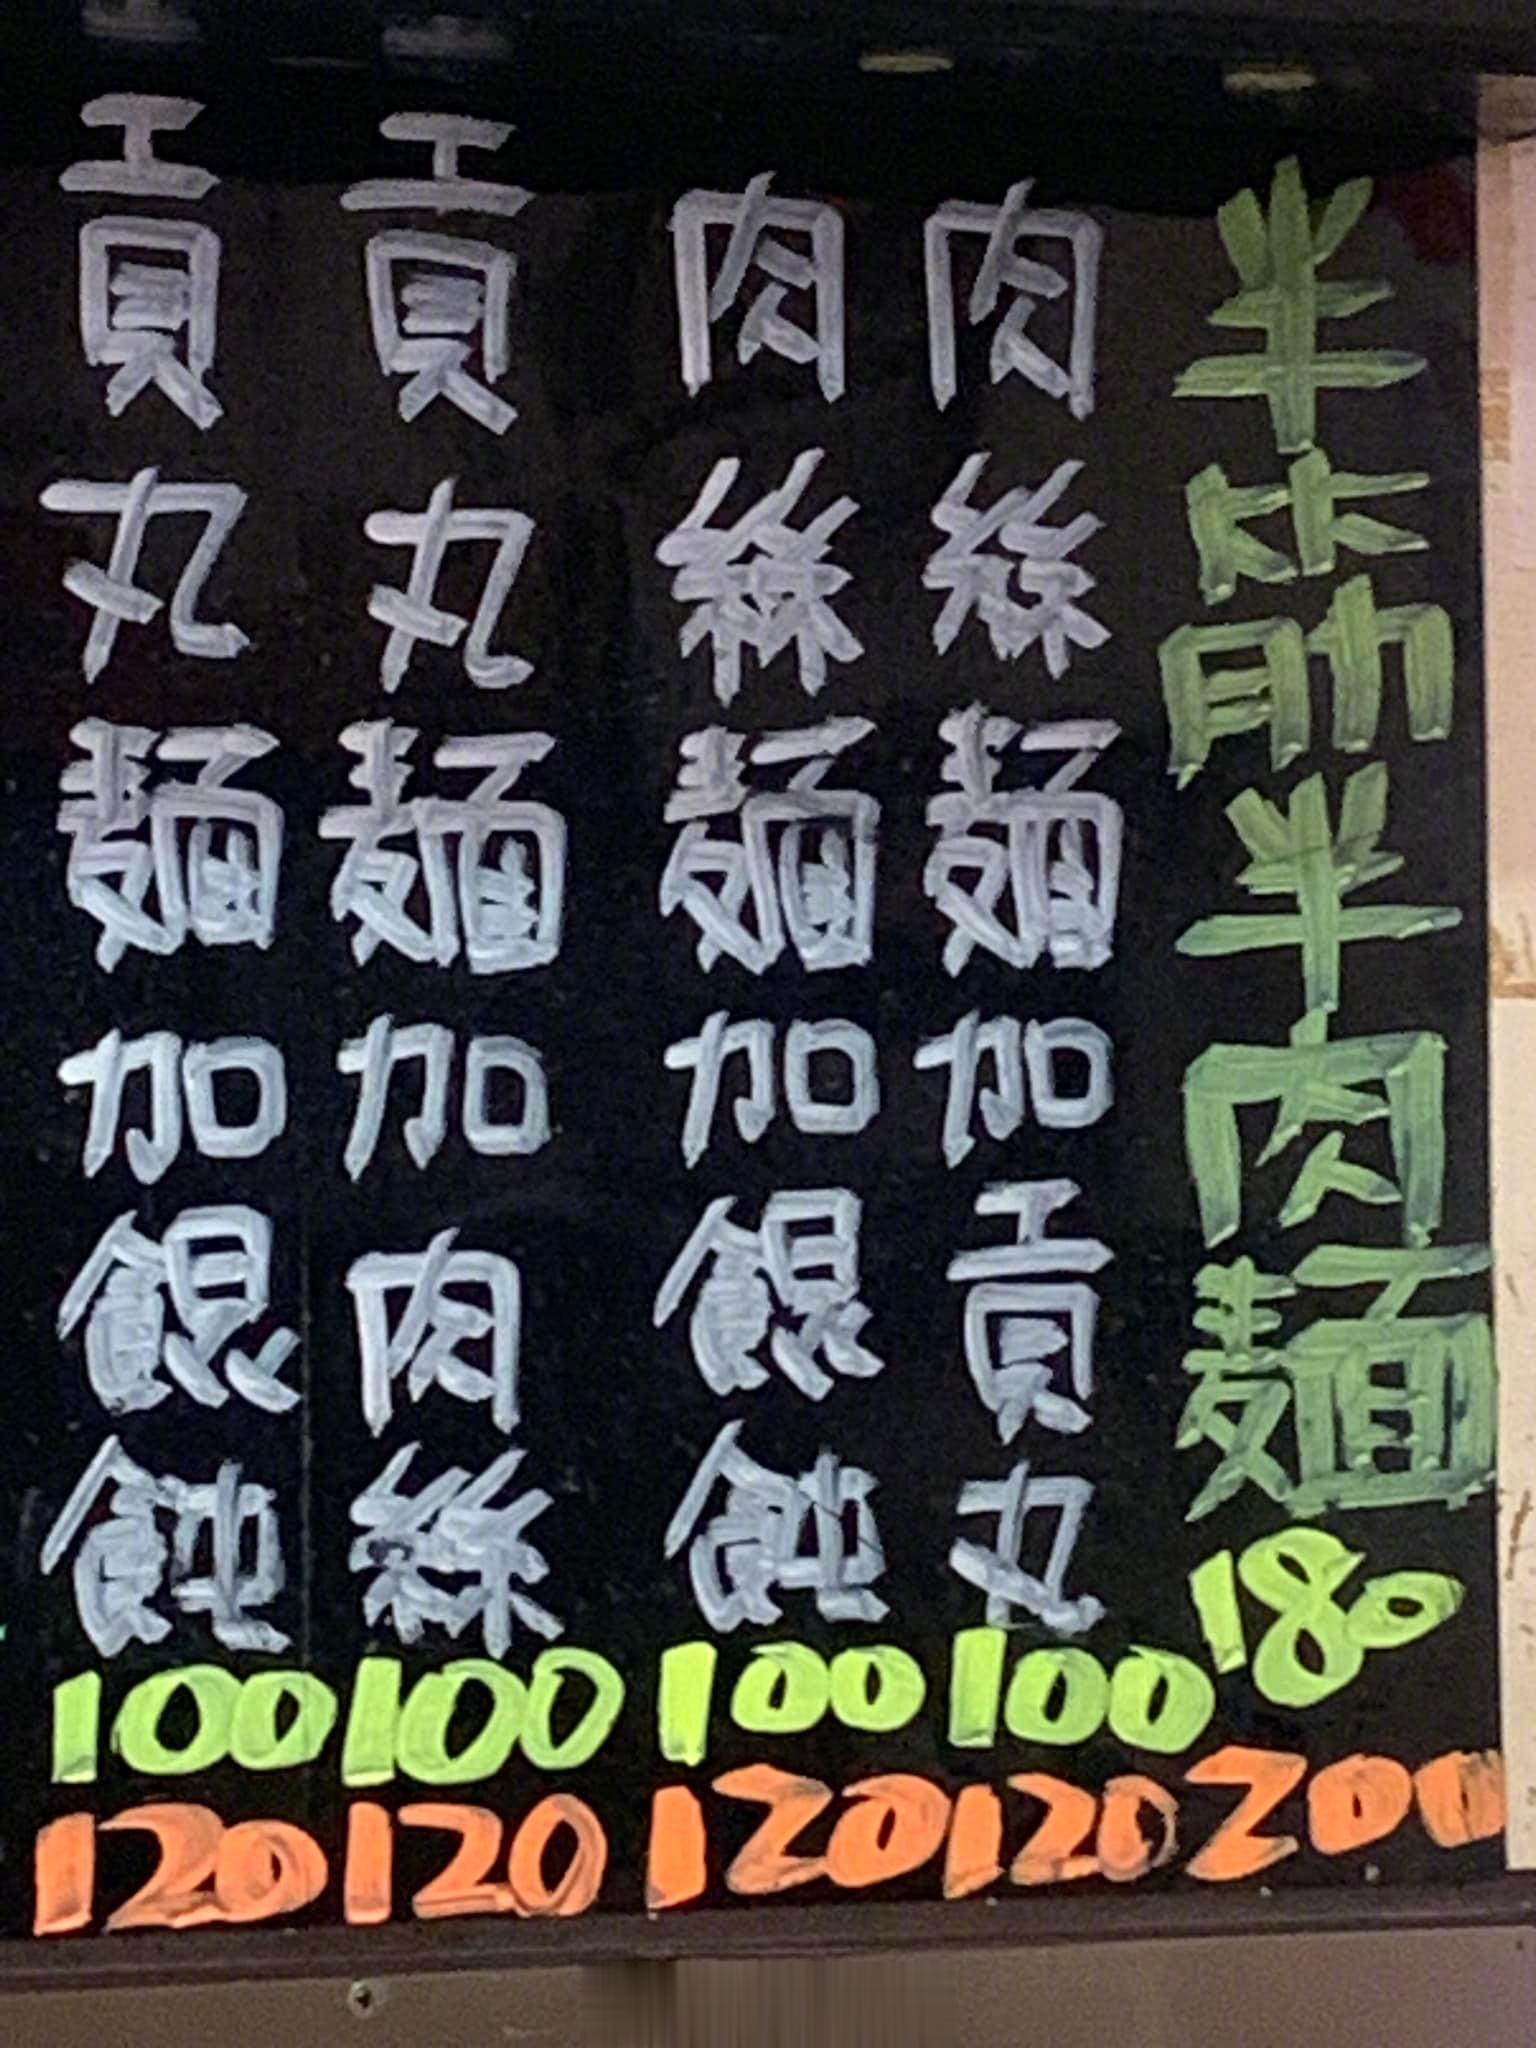 半筋半肉麵 180 200
肉絲麵加貢丸 100 120
肉絲麵加餛飩 100 120
貢丸麵加肉絲 100 120
貢丸麵加餛飩 100 120